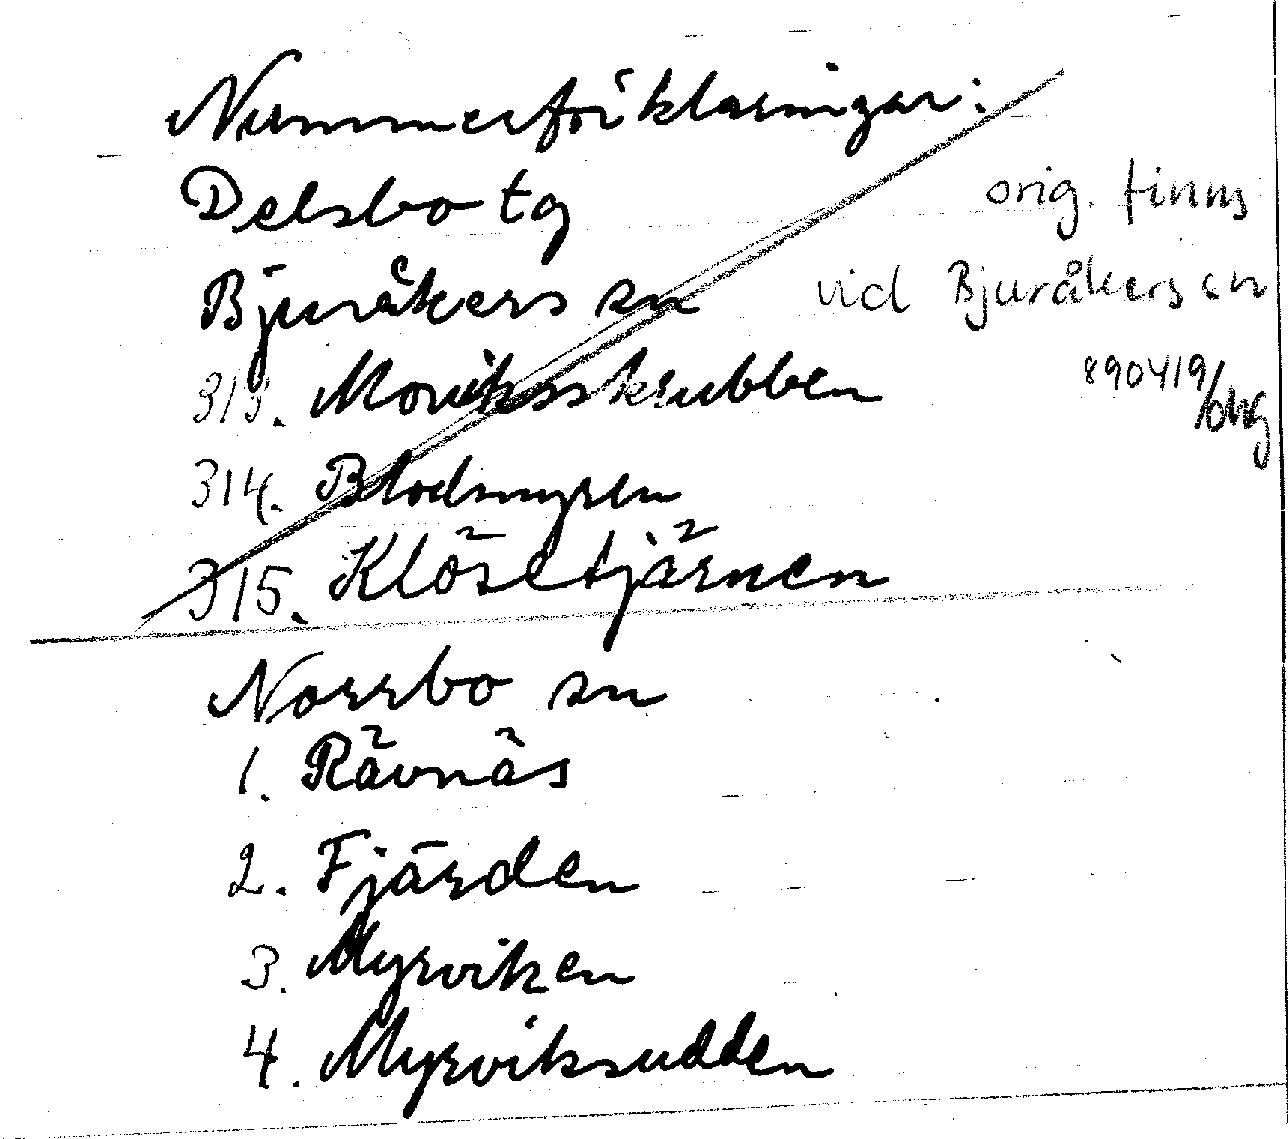 Nummerförklaringar:
Delsbo tg
Bjuråkers sn
313. Moviksskrubben
314. Blodsmyren
315. Klösetjärnen
orig. finns
vid Bjuråkers sn
890419/
Norrbo sn
1. Rävnäs
2. Fjärden
3. Myrviken
4. Myrviksudden